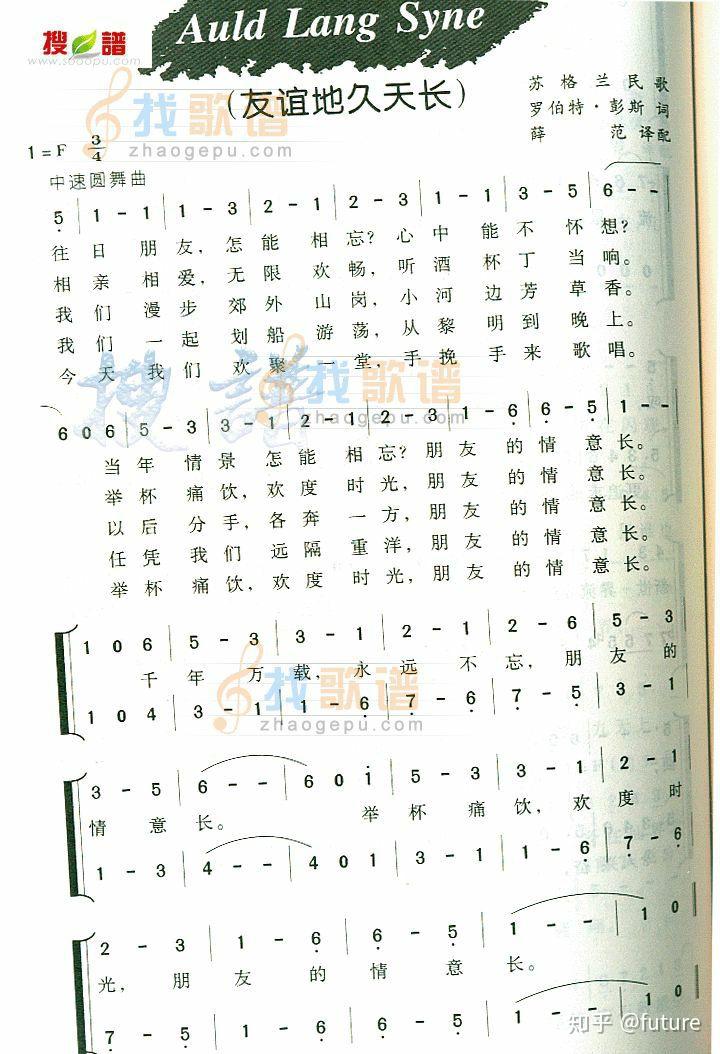 搜譜
www.sooopu.com
Auld Lang Syne
(友谊地久天长)
苏格兰民歌
罗伯特·彭斯 词
薛 范 译配
找歌谱
zhaogepu.com
1=F 3/4
中速圆舞曲
5 | 1 - 1 | 1 - 3 | 2 - 1 | 2 - 3 | 1 - 1 | 3 - 5 | 6 - - |
往日朋友,怎能相忘?心中能不怀想?
相亲相爱,无限欢畅,听酒杯丁当响。
我们漫步郊外山岗,小河边芳草香。
我们一起划船游荡,从黎明到晚上。
今天我们欢聚一堂,手挽手来歌唱。
搜譜
找歌谱
zhaogepu.com
6 0 6 | 5 - 3 | 3 - 1 | 2 - 1 | 2 - 3 | 1 - 6 | 6 - 5 | 1 - - |
当年情景怎能相忘?朋友的情意长。
举杯痛饮,欢度时光,朋友的情意长。
以后分手,各奔一方,朋友的情意长。
任凭我们远隔重洋,朋友的情意长。
举杯痛饮,欢度时光,朋友的情意长。
1 0 6 | 5 - 3 | 3 - 1 | 2 - 1 | 2 - 6 | 5 - 3
千年万载,永远不忘,朋友的
找歌谱
zhaogepu.com
1 0 4 | 3 - 1 | 1 - 6 | 7 - 6 | 7 - 5 | 3 - 1
3 - 5 | 6 - - | 6 0 1 | 5 - 3 | 3 - 1 | 2 - 1
情意长。举杯痛饮,欢度时
1 - 3 | 4 - - | 4 0 1 | 3 - 1 | 1 - 6 | 7 - 6
2 - 3 | 1 - 6 | 6 - 5 | 1 - - | 1 0
光,朋友的情意长。
7 - 5 | 1 - 6 | 6 - 5 | 1 - - | 1 0
知乎 @future